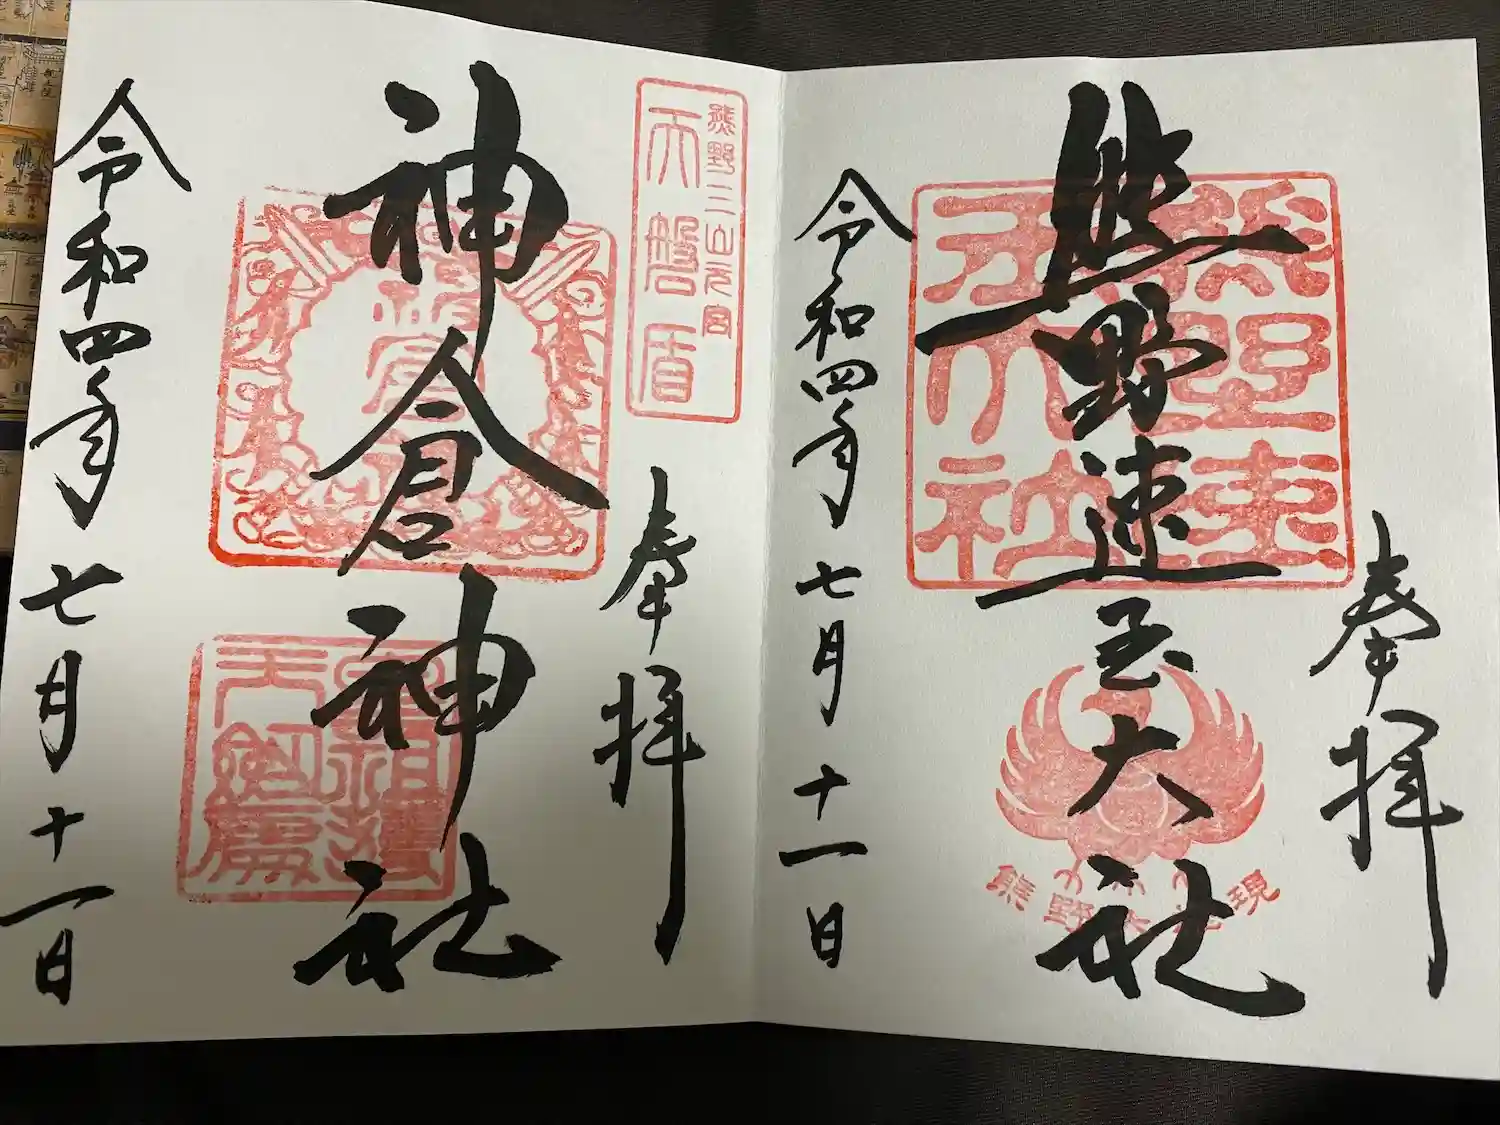 奉拝
熊野速玉大社
熊野速玉大社
熊野大権現
令和四年七月十一日
熊野三山元宮
天磐盾
奉拝
神倉神社
令和四年七月十一日